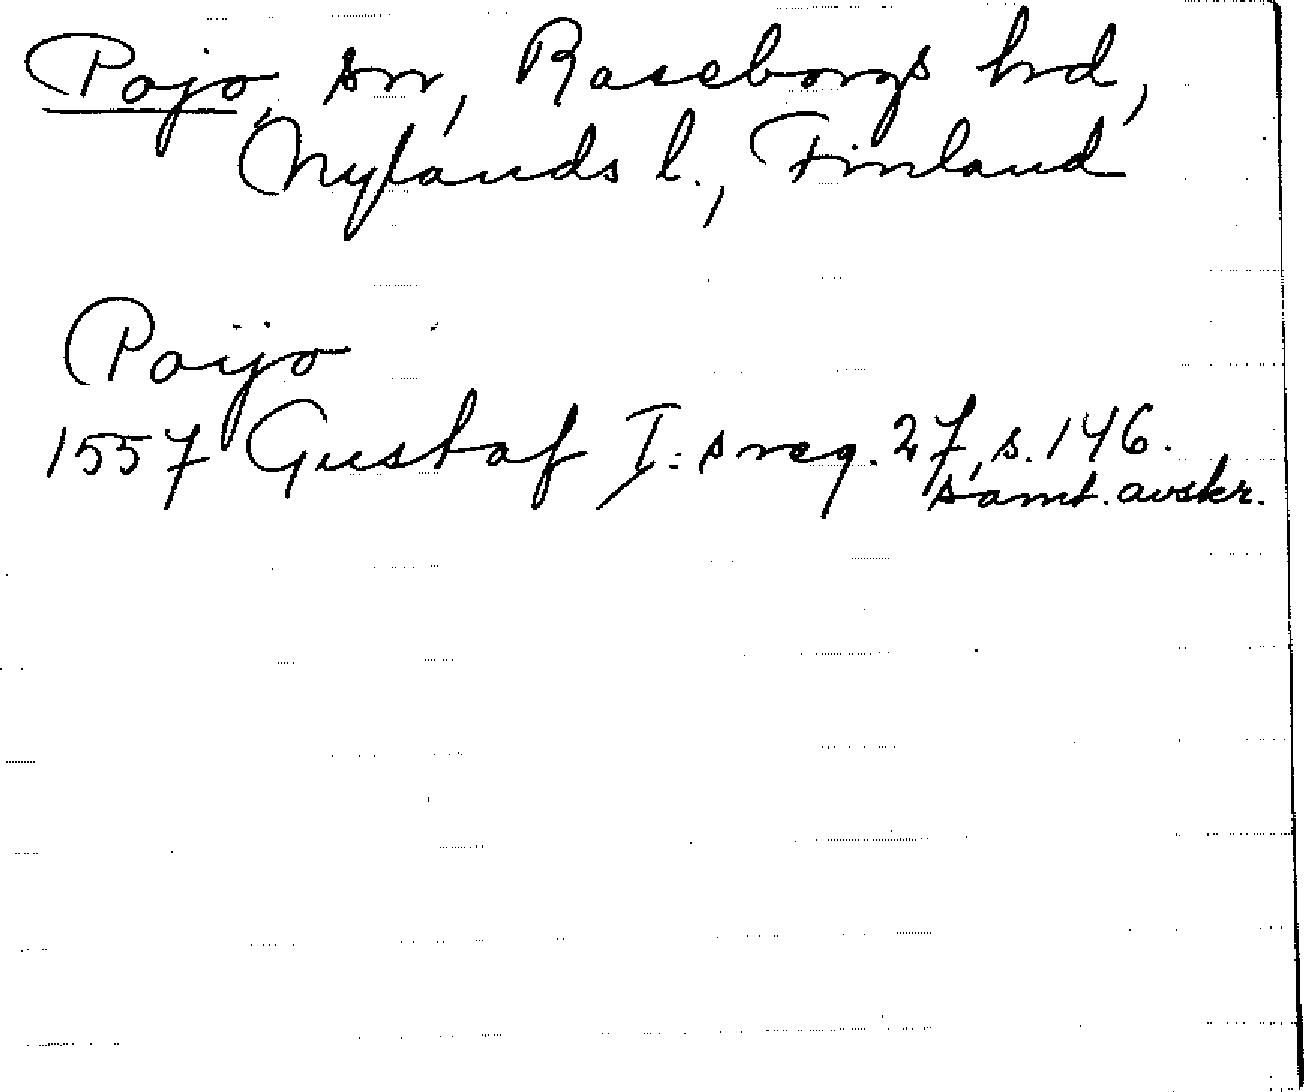 Pojo, sn, Raseborgs hd,
Nylands l., Finland
Poijo
1557 Gustaf I:s reg. 27, s. 146.
samt. avskr.